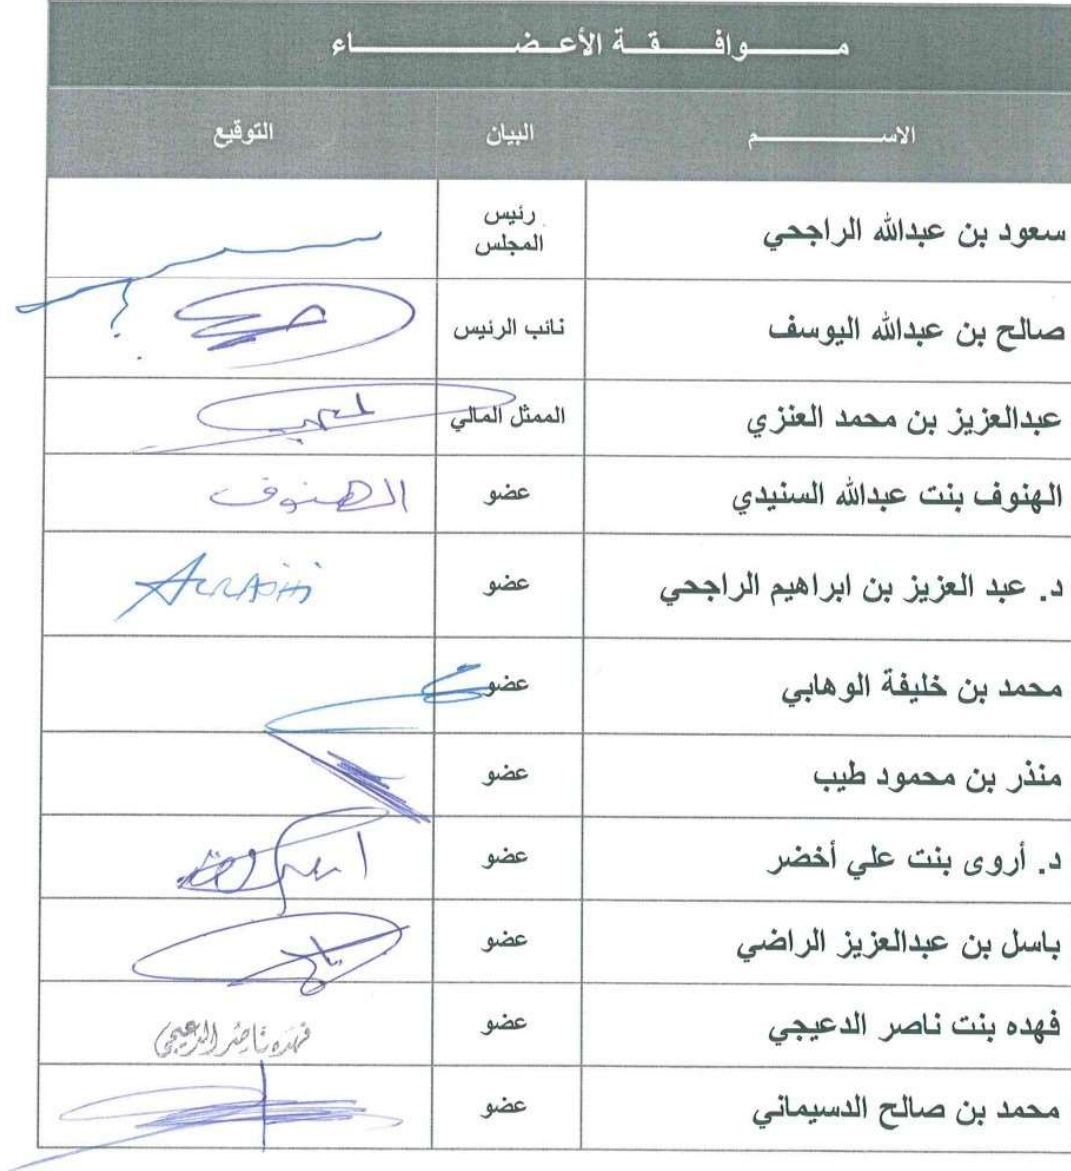 مـــوافـــقـــة الأعـــضـــاء
الاســـم البيان التوقيع
سعود بن عبدالله الراجحي رئيس المجلس
صالح بن عبدالله اليوسف نائب الرئيس
عبدالعزيز بن محمد العنزي الممثل المالي
الهنوف بنت عبدالله السنيدي عضو الهنوف
د. عبد العزيز بن ابراهيم الراجحي عضو
محمد بن خليفة الوهابي عضو
منذر بن محمود طيب عضو
د. أروى بنت علي أخضر عضو
باسل بن عبدالعزيز الراضي عضو
فهده بنت ناصر الدعيجي عضو فهده ناصر الدعيجي
محمد بن صالح الدسيماني عضو